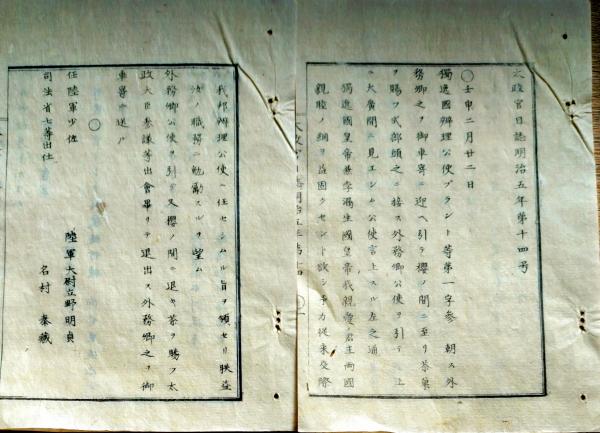 太政官日誌明治五年第十四号
○壬申二月廿二日
獨逸國辨理公使ブラント等第一字参 朝ス外
務卿之ヲ御車寄ニ迎ヘ引テ櫻ノ間ニ至リ茶菓
ヲ賜フ式部頭之ニ接ス外務卿公使ヲ引テ 上
ニ大廣間ニ見エシム公使言上スル左之通
獨逸國皇帝兼孛漏生國皇帝我親愛ノ君主両國
親睦ノ綱ヲ益固クセント欲シ予カ従来交際
我邦辨理公使ヘ任セシムル旨ヲ領セリ朕益
汝ノ職務ニ勉勵スルヲ望ム
外務卿公使ヲ引テ又櫻ノ間ニ退キ茶ヲ賜フ太
政大臣参議等出會畢リテ退出ス外務卿之ヲ御
車寄ニ送ル
○
陸軍大尉立野明貞
任陸軍少佐
名村 泰藏
司法省七等出仕